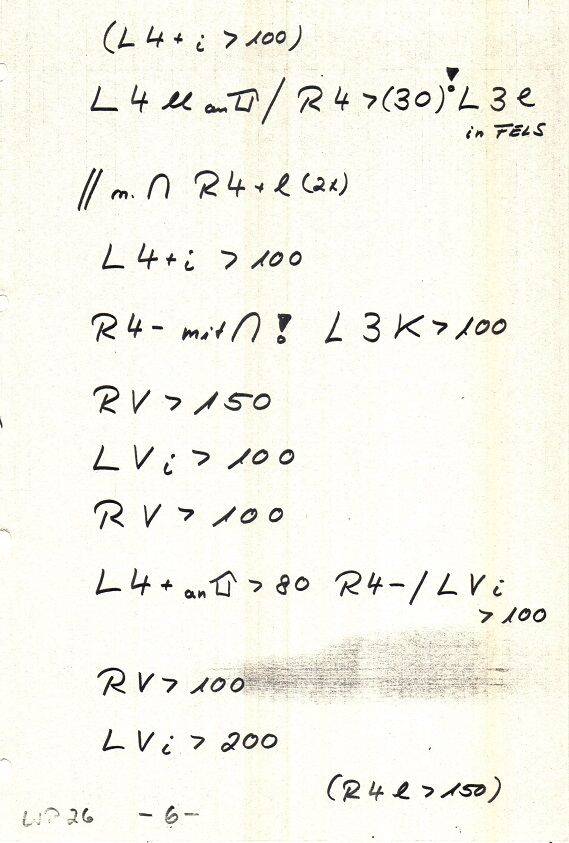 (L4+i >100)
L4 ll an / R4 >(30) ! L3l
in FELS
// m. ∩ R4+l (2x)
L4+i >100
R4- mit ∩ ! L3K >100
RV >150
LVi >100
RV >100
L4+ an >80 R4-/LVi
>100
RV >100
LVi >200
(R4l >150)
WP26 -6-